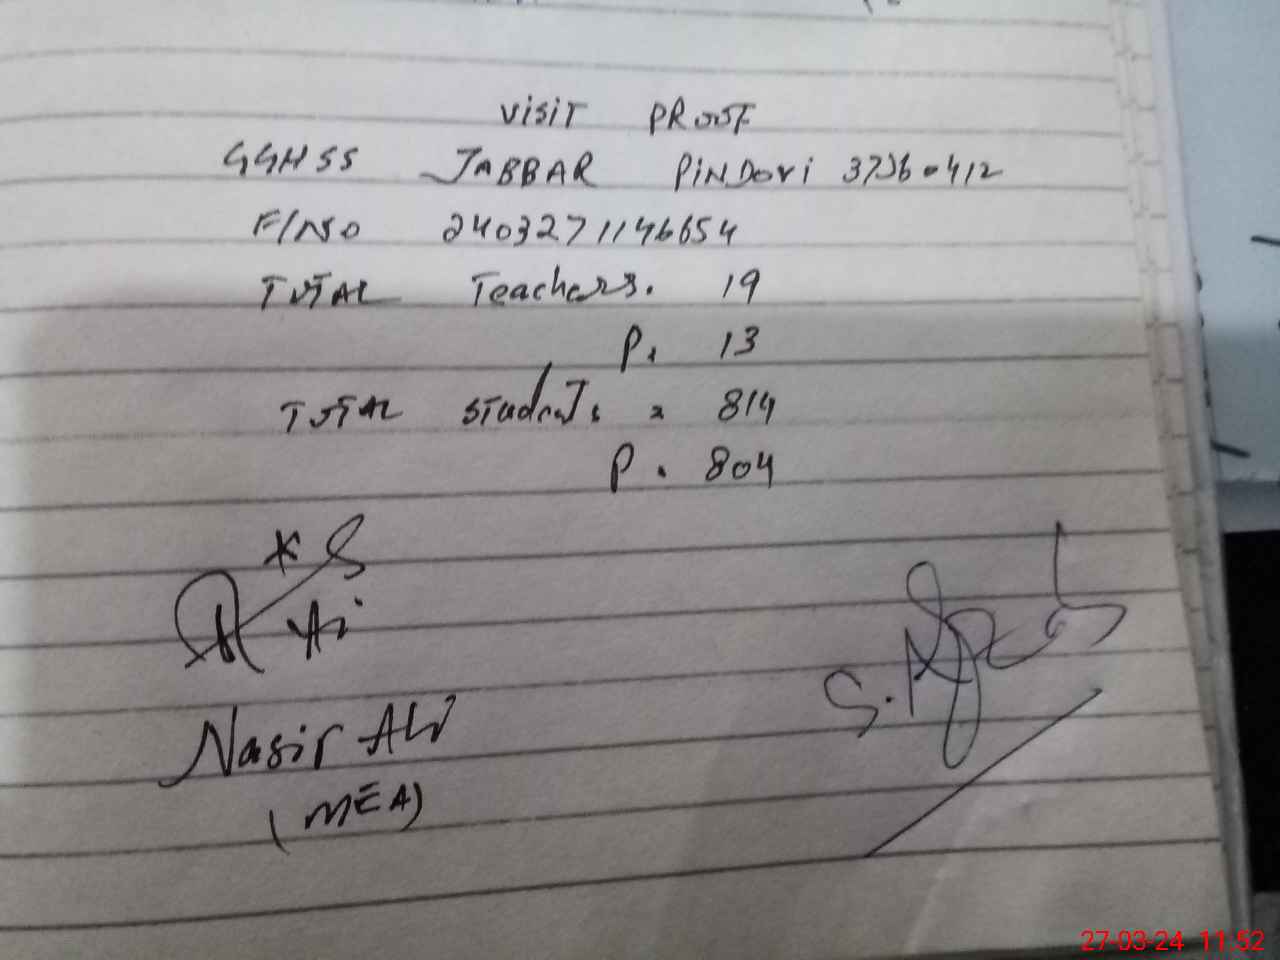 VISIT PROOF
GGHSS JABBAR PINDORI 37360412
F/NO 2403271146654
TOTAL Teachers. 19
P. 13
TOTAL Students = 814
P. 804
Nasir Ali
(MEA)
27-03-24 11:52